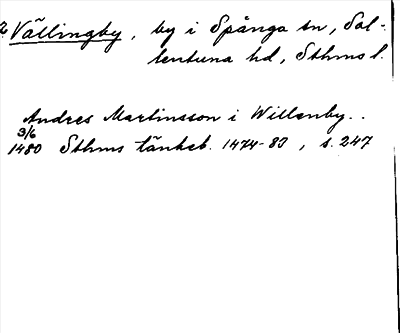 Vällingby, by i Spånga sn, Sol-
lentuna hd, Sthms l.
Andres Martinsson i Willenby..
3/6
1480 Sthms tänkeb. 1474-83, s. 247